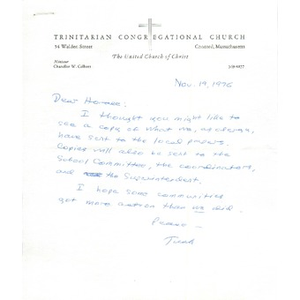 TRINITARIAN CONGREGATIONAL CHURCH
54 Walden Street
Concord, Massachusetts
The United Church of Christ
Minister
Nov. 19, 1976
Dear
I thought you might like to
see a copy of what we, as clergy,
have sent to the local press.
Copies will also be sent to the
School Committee, the coordinators,
and the Superintendent.
I hope some communities
got more action than we did.